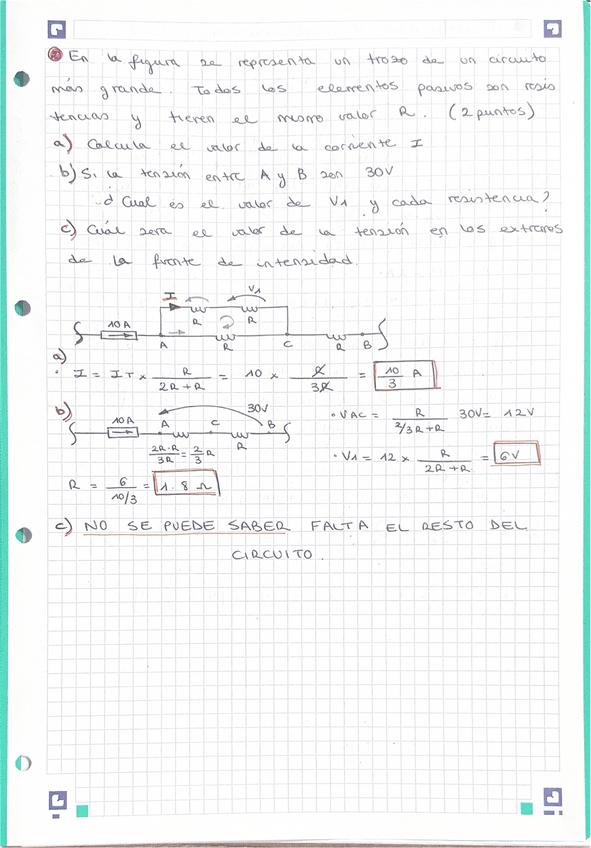 En la figura se representa un trozo de un circuito
más grande. Todos los elementos pasivos son resis
tencias y tienen el mismo valor R. (2 puntos)
a) Calcula el valor de la corriente I
b) Si la tensión entre A y B son 30V
¿Cual es el valor de V1 y cada resistencia?
c) Cuál sera el valor de la tensión en los extremos
de la fuente de intensidad.
I V1
R R
10A
A R C R B
a)
· I = IT × R / 2R + R = 10 × R / 3R = 10 / 3 A
b) 30V
10A A C B
2R·R / 3R = 2 / 3 R R
· VAC = R / 2/3R + R 30V = 12V
· V1 = 12 × R / 2R + R = 6V
R = 6 / 10/3 = 1.8 Ω
c) NO SE PUEDE SABER FALTA EL RESTO DEL
CIRCUITO.